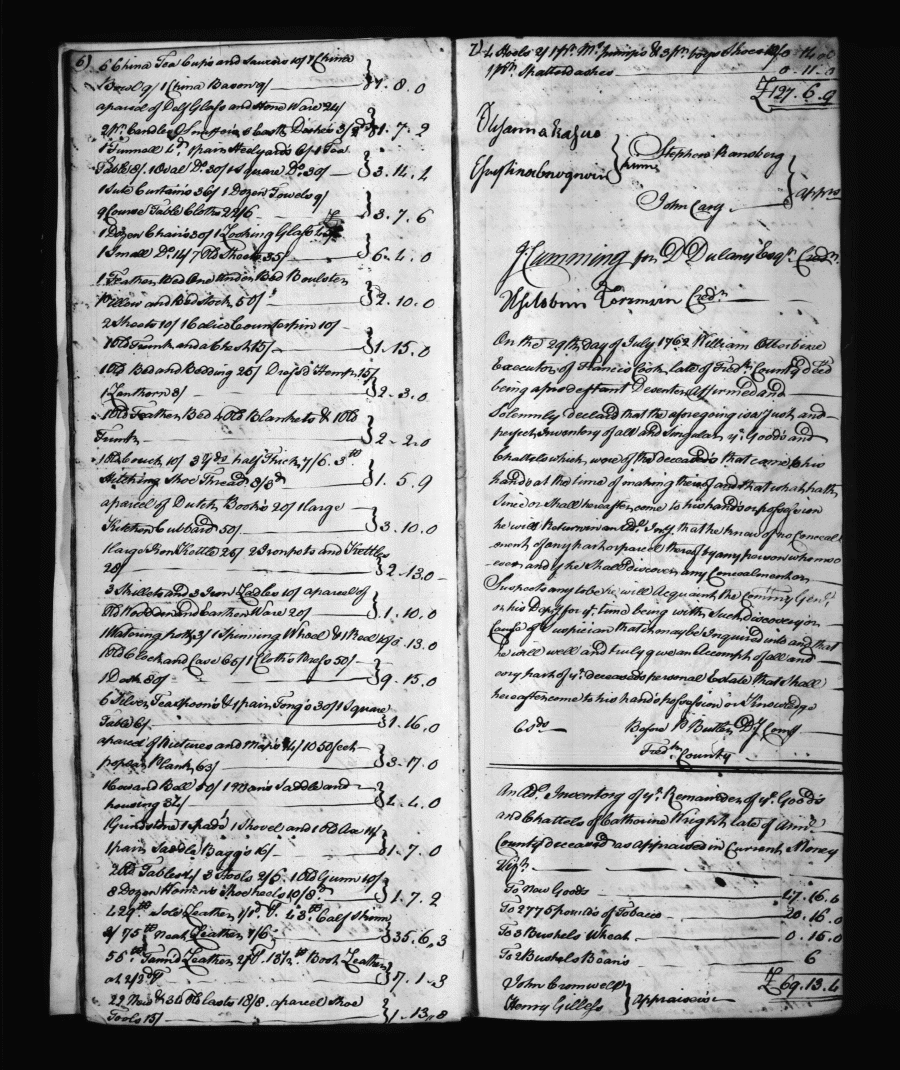 6)
6 China Tea Cups and Saucers 10/ 7 China
Bowls 9/ 1 China Bason 9/ 1. 8. 0
a parcel of Delf Glass and Stone Ware 24/
2 pr. Candles & Snuffers 6 Earth Dishes 3/2d 1. 7. 2
1 Funnell 4d. 1 pair Stealyards 6/ 1 Tea
Table 8/ 1 Oval Do. 30/ 1 Square Do. 30/ 3. 14. 4
1 Sute Curtains 36/ 1 Dozen Towels 9/
9 Course Table Cloths 22/6 3. 7. 6
1 Dozen Chairs 30/ 1 Looking Glass
1 Small Do. 14/ 7 Old Sheets 35/ 6. 4. 0
1 Feather Bed One under Bed Boulster
Pillow and Bedstock 50/ 2. 10. 0
2 Sheets 10/ 1 Calico Counterpin 10/
1 Old Trunk and a Chest 15/ 1. 15. 0
1 Old Bed and Bedding 25/ Dress'd Hemp 15/
1 Lanthorn 3/ 2. 3. 0
1 Old Feather Bed 4 Old Blankets & 1 Old
Trunk 2. 2. 0
1 Old Couch 10/ 3 yds. half Thick 7/6. 3 lb
Stitching Shoe Thread 8/3d 1. 5. 9
a parcel of Dutch Books 20/ 1 large
Kitchen Cubbard 50/ 3. 10. 0
1 large Iron Kettle 25/ 2 Iron pots and Kettles
28/ 2. 13. 0
3 Skillets and 3 Iron Ladles 10/ a parcel of
Old Wooden and Earthen Ware 20/ 1. 10. 0
1 Watering pott 3/ 1 Spinning Wheel & 1 Reel 10/ 0. 13. 0
1 Old Clock and Case 65/ 1 Cloths Press 50/
1 Desk 80/ 9. 15. 0
6 Silver Teaspoons & 1 pair Tongs 30/ 1 Square
Table 6/ 1. 16. 0
a parcel of Pictures and Maps 14/ 1050 feet
poplar Plank 63/ 3. 17. 0
1 Cow and Bell 50/ 1 Man's Saddle and
housing 34/ 4. 4. 0
1 Grindstone 1 Spade 1 Shovel and 1 Old Axe 11/
1 pair Saddle Baggs 16/ 1. 7. 0
2 Old Tables 4/ 3 Stools 2/6. 1 Old Gunn 10/
8 Dozen Womens Shoe heels 10/8d 1. 7. 2
429 lb Sole Leather 1/1d 43 lb Calf Skinn
2/ 75 lb Neat Leather 1/6 35. 6. 3
55 lb Tann'd Leather 18 1/2 lb Boot Leather
at 2/2d 7. 1. 3
22 New & 34 Old Lasts 18/8. a parcel Shoe
Tools 15/ 1. 13. 8
7)
1 pr. Spatterdashes 0. 11. 0
£ 127. 6. 9
Susanna
Stephen Ransberg
John Cary
Apprs.
J. Cumming for D Dulany Esqr. Credr.
Credr.
On the 29th. day of July 1762 William Otterbine
Executor of Francis Cook late of Fredk. County deced
being a prodestant Desenter Affirmed and
Solemnly declard that the aforegoing is a Just and
perfect Inventory of all and Singular ye. Goods and
Chattels which were of the deceaseds that came to his
hands at the time of making thereof and that what hath
Since or Shall hereafter come to his hands or possession
he will Return in an Adl. Invy. that he knows of no Conceal
ment of any part or parcel thereof by any person whomso
ever and if he Shall discover any Concealment or
Suspects any to be he will Acquaint the Com'ry Genl.
or his Depty for ye. time being with Such discovery or
Cause of Suspician that it may be Inquired into and that
he will well and truly give an Accompt of all and
every part of ye. deceaseds personal Estate that Shall
hereafter come to his hands possession or Knowledge
Before P Butler Dy Comy
Fredk. County
An Adl. Inventory of ye. Remainder of ye. Goods
and Chattels of Catharine Wright late of Annl.
County deceased as appraised in Current Money
Vizt.
To New Goods 47. 16. 6
To 2775 pounds of Tobacco 20. 16. 0
To 3 Bushels Wheat 0. 15. 0
To 2 Bushels Beans 6
£ 69. 13. 6
John Cromwell
Henry Gilless
Appraisers